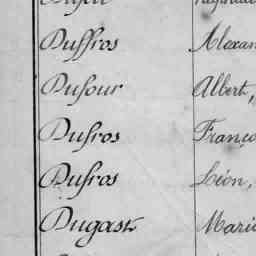 Duffros Alexan
Dufour Albert,
Dufros Franço
Dufros Léon,
Dugast Marie